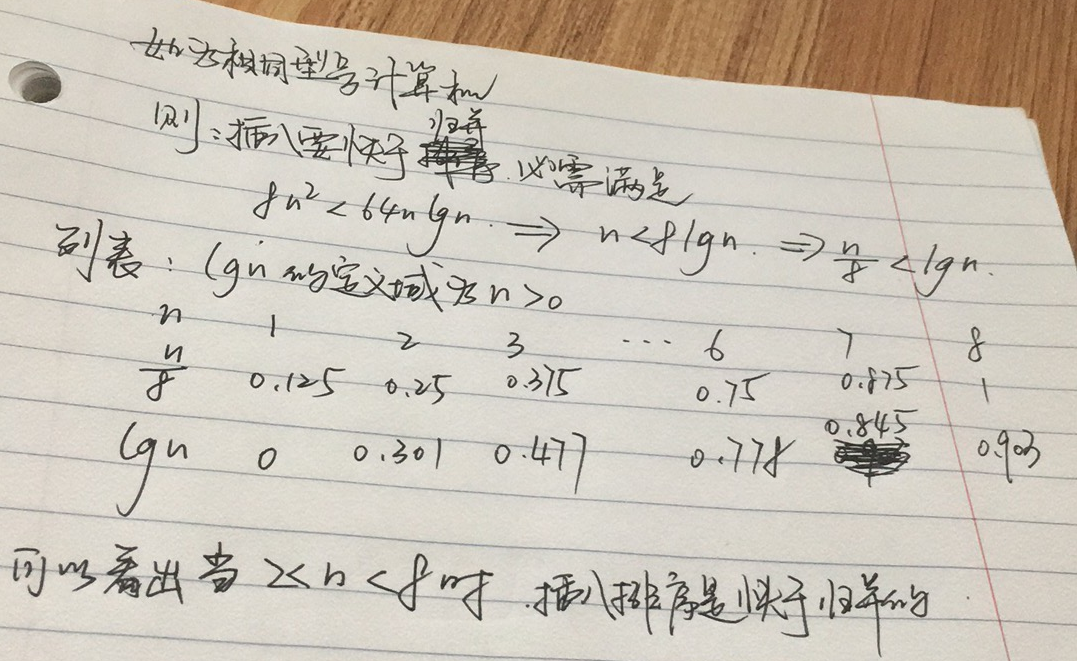 如为相同型号计算机
则:插入要快于归并 必需满足
8n² < 64n lgn. ⇒ n < 8 lgn. ⇒ n/8 < lgn.
列表: lgn 的定义域为 n>0
n 1 2 3 ... 6 7 8
n/8 0.125 0.25 0.375 0.75 0.875 1
lgn 0 0.301 0.477 0.778 0.845 0.903
可以看出当 2<n<8时.插入排序是快于归并的.